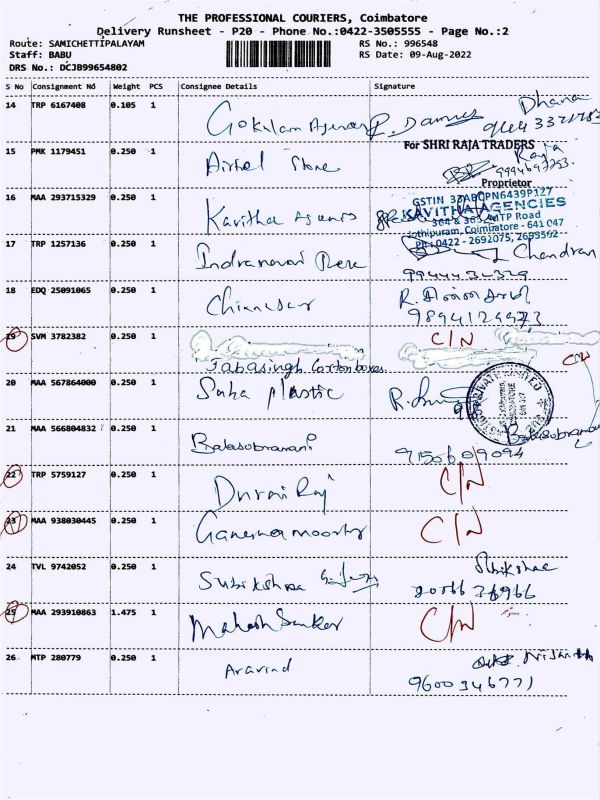 THE PROFESSIONAL COURIERS, Coimbatore
Delivery Runsheet - P20 - Phone No.:0422-3505555 - Page No.:2
Route: SAMICHETTIPALAYAM RS No.: 996548
Staff: BABU RS Date: 09-Aug-2022
DRS No.: DCJB99654802
S No Consignment No Weight PCS Consignee Details Signature
14 TRP 6167408 0.105 1 Gokulam Dhana
15 PMK 1179451 0.250 1 Airtel Store For SHRI RAJA TRADERS
Raja
9994697253.
Proprietor
16 MAA 293715329 0.250 1 Kavitha GSTIN 33ABCPN6439P127
KAVITHA AGENCIES
364 & 365, MTP Road
Jothipuram, Coimbatore - 641 047
PH: 0422 - 2692075, 2693562
17 TRP 1257136 0.250 1 Chandran
18 EDQ 25091065 0.250 1
9894129973
19 SVM 3782382 0.250 1 C/N
Jabasingh Carton boxes. C/N
20 MAA 567864000 0.250 1 Suha plastic
21 MAA 566804832 0.250 1 Balasubramani Balasubramani
9150609094
22 TRP 5759127 0.250 1 Durai Raj C/N
23 MAA 938030445 0.250 1 Ganesha moorthy C/N
24 TVL 9742052 0.250 1 Subikshaa
25 MAA 293910863 1.475 1 Mahesh Sankar C/N
26 MTP 280779 0.250 1 Aravind Nishanth
9600346771